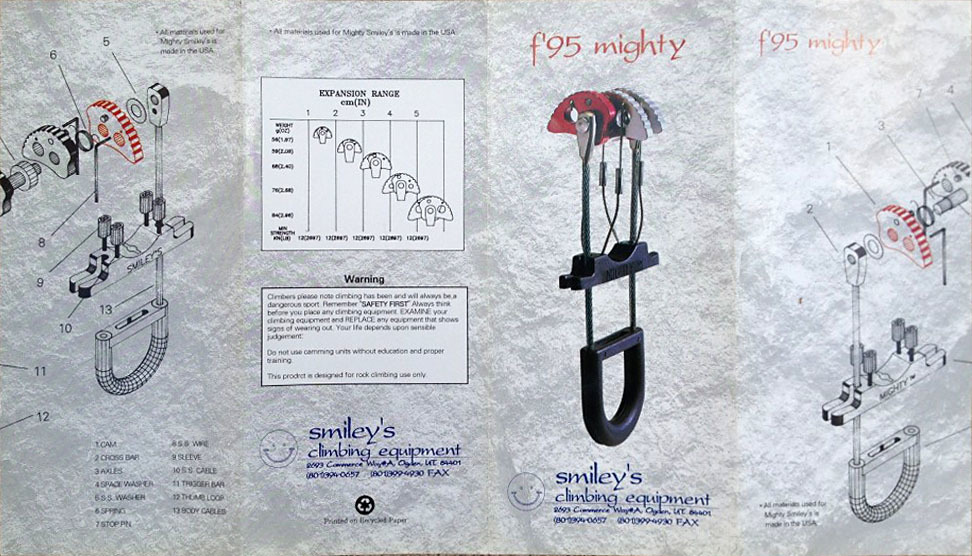 • All materials used for
Mighty Smiley's is
made in the USA.
5
6
8
9
10
13
11
12
SMILEY'S
1 CAM
2 CROSS BAR
3 AXLES
4 SPACE WASHER
5 S.S. WASHER
6 SPRING
7 STOP PIN
8 S.S. WIRE
9 SLEEVE
10 S.S. CABLE
11 TRIGGER BAR
12 THUMB LOOP
13 BODY CABLES
• All materials used for Mighty Smiley's is made in the USA
EXPANSION RANGE
cm(IN)
1 2 3 4 5
WEIGHT
g(OZ)
56(1.97)
59(2.08)
68(2.40)
76(2.68)
84(2.96)
MIN
STRENGTH
KN(LB) 12(2697) 12(2697) 12(2697) 12(2697) 12(2697)
Warning
Climbers please note climbing has been and will always be,a
dangerous sport. Remember "SAFETY FIRST" Always think
before you place any climbing equipment. EXAMINE your
climbing equipment and REPLACE any equipment that shows
signs of wearing out. Your life depends upon sensible
judgement.
Do not use camming units without education and proper
training.
This prodrct is designed for rock climbing use only.
smiley's
climbing equipment
2693 Commerce Way#A, Ogden, UT. 84401
(801)394-0657 (801)399-4930 FAX
Printed on Recycled Paper
f'95 mighty
smiley's
climbing equipment
2693 Commerce Way#A, Ogden, UT. 84401
(801)394-0657 (801)399-4930 FAX
f'95 mighty
7
4
3
1
2
MIGHTY ™
• All materials used for
Mighty Smiley's is
made in the USA.